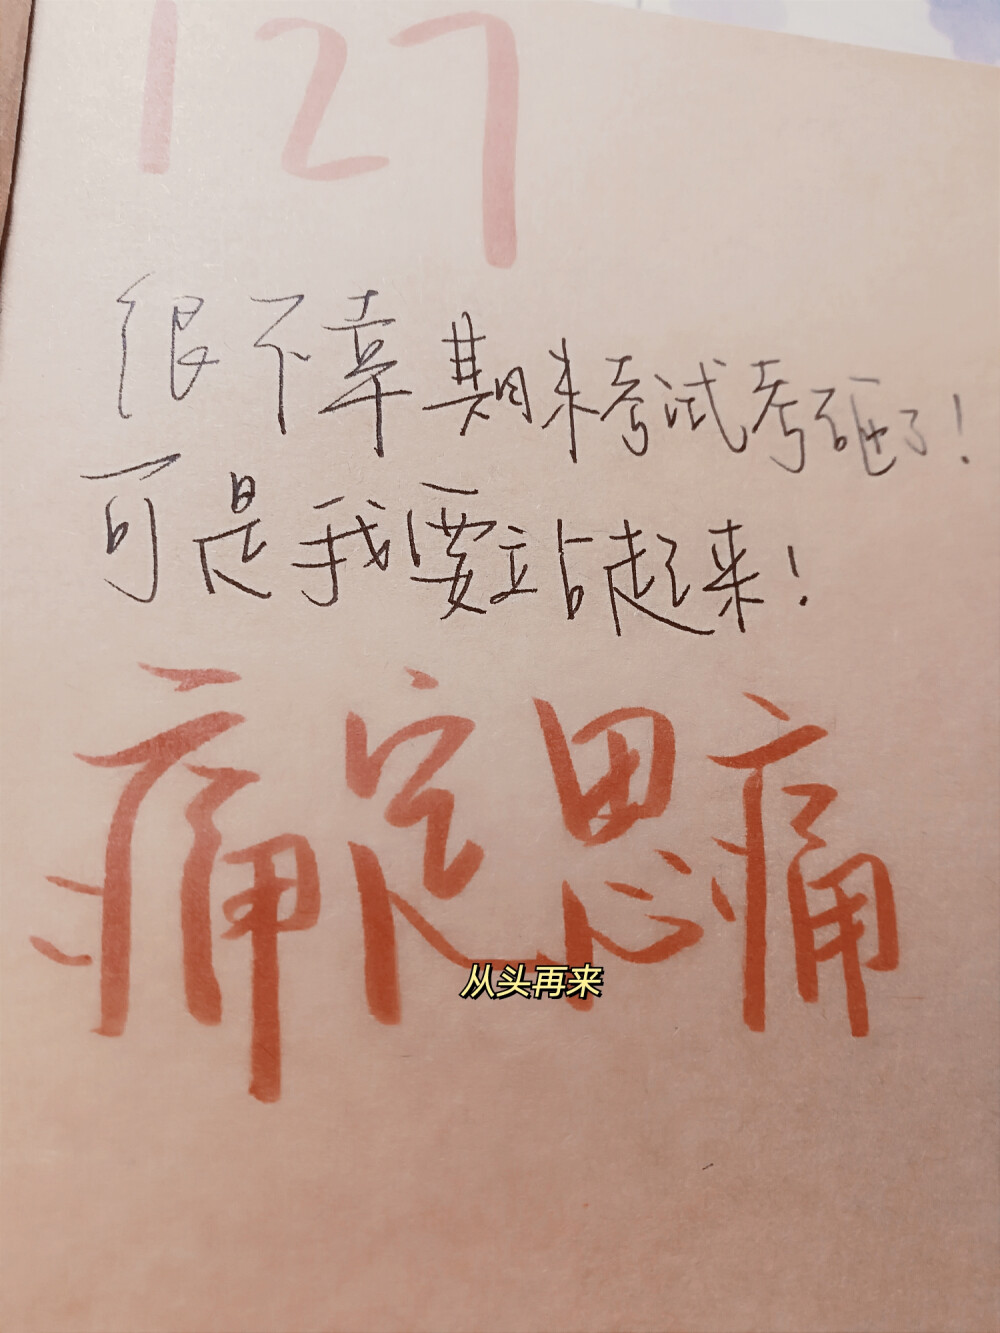 127
很不幸期末考试考砸了！
可是我要站起来！
痛定思痛
从头再来